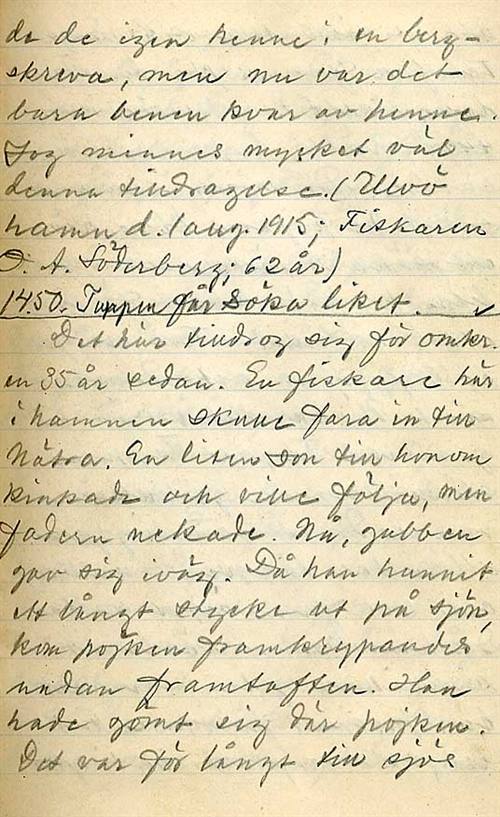 da de igen henne i en berg-
skreva, men nu var det
bara benen kvar av henne.
Jag minnes mycket väl
denna tilldragelse. (Ulvö
hamn d. 1 aug. 1915; Fiskaren
O. A. Söderberg; 62 år)
1450. Tuppen får söka liket.
Det här tilldrog sig för omkr.
en 35 år sedan. En fiskare här
i hamnen skulle fara in till
Nätra. En liten son till honom
kinkade och ville följa, men
fadern nekade. Nå, gubben
gav sig iväg. Då han hunnit
ett långt stycke ut på sjön,
kom pojken framkrypandes
undan framtoften. Han
hade gömt sig där pojken.
Det var för långt till sjös